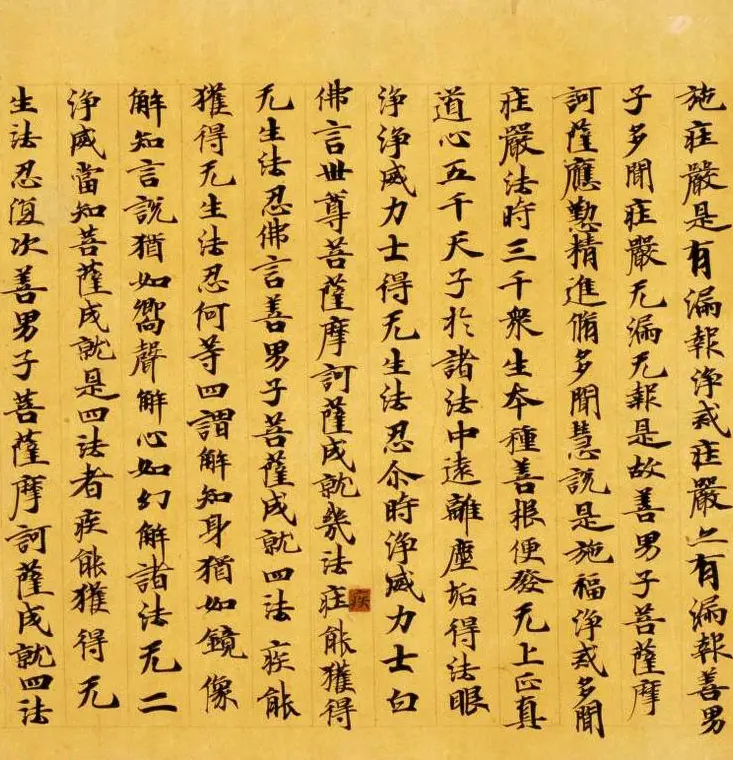 施莊嚴是有漏報淨戒莊嚴亦有漏報善男
子多聞莊嚴无漏无報是故善男子菩薩摩
訶薩應懃精進脩多聞慧說是施福淨戒多聞
莊嚴法時三千衆生本種善根便發无上正真
道心五千天子於諸法中遠離塵垢得法眼
淨淨威力士得无生法忍尒時淨威力士白
佛言世尊菩薩摩訶薩成就幾法莊能獲得
疾
无生法忍佛言善男子菩薩成就四法疾能
獲得无生法忍何等四謂解知身猶如鏡像
解知言說猶如嚮聲解心如幻解諸法无二
淨威當知菩薩成就是四法者疾能獲得无
生法忍復次善男子菩薩摩訶薩成就四法